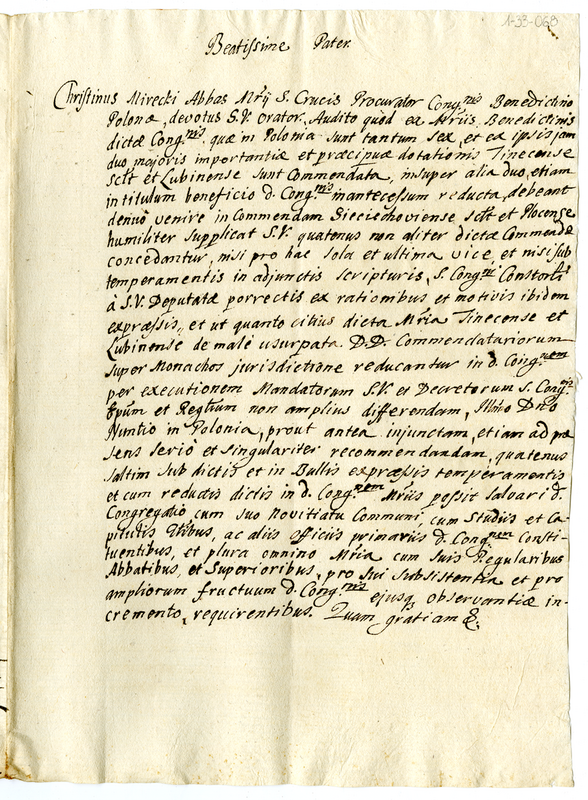 1-33-068
Beatissime Pater
Christinus Mirecki Abbas Mrij S. Crucis Procurator Congnis Benedictino
Polonæ, devotus S.V. orator, Audito quod ex Mriis Benedictinis
dictæ Congnis quæ in Polonia sunt tantum sex, et ex ipsis jam
duo majoris importantiæ et præcipuæ dotationis Tinecense
sclt et Lubinense sunt Commendata, insuper alia duo, etiam
in titulum beneficio d. Congnis in antecessum reducta, debeant
denuò venire in Commendam Sieciechoviense, sclt et Plocense
humiliter supplicat S.V. quatenus non aliter dictæ Commendæ
concedantur, nisi pro hac sola et ultima vice, et nisi sub
temperamentis in adjunctis scripturis, S. Congni
à S.V. Deputatæ porrectis ex rationibus et motivis ibidem
expræssis, et ut quanto citius dicta Mria Tinecense et
Lubinense de malè usurpata D.D. Commendatariorum
super Monachos jurisdictione reducantur in d. Congnem
per executionem Mandatorum S.V. et Decretorum S. Congnis
Epum et Regrium non amplius differendam, Illmo Dno
Nuntio in Polonia, prout antea injunctam, etiam ad præ
sens seriò et singulariter recommendandam, quatenus
saltim sub dictis et in Bullis expræssis temperamentis
et cum reductis dictis in d. Congnem Mriis possit salvari d.
Congregatio cum suo Novitiatu Communi, cum Studiis et Ca-
pitulis, ac aliis officiis primariis d. Congnem Consti-
tuentibus, et plura omnino Mria cum suis Regularibus
Abbatibus, et Superioribus, pro sui subsistentia et pro
ampliorum fructuum d. Congnis ejusq observantiæ in-
cremento, requirentibus. Quam gratiam &.